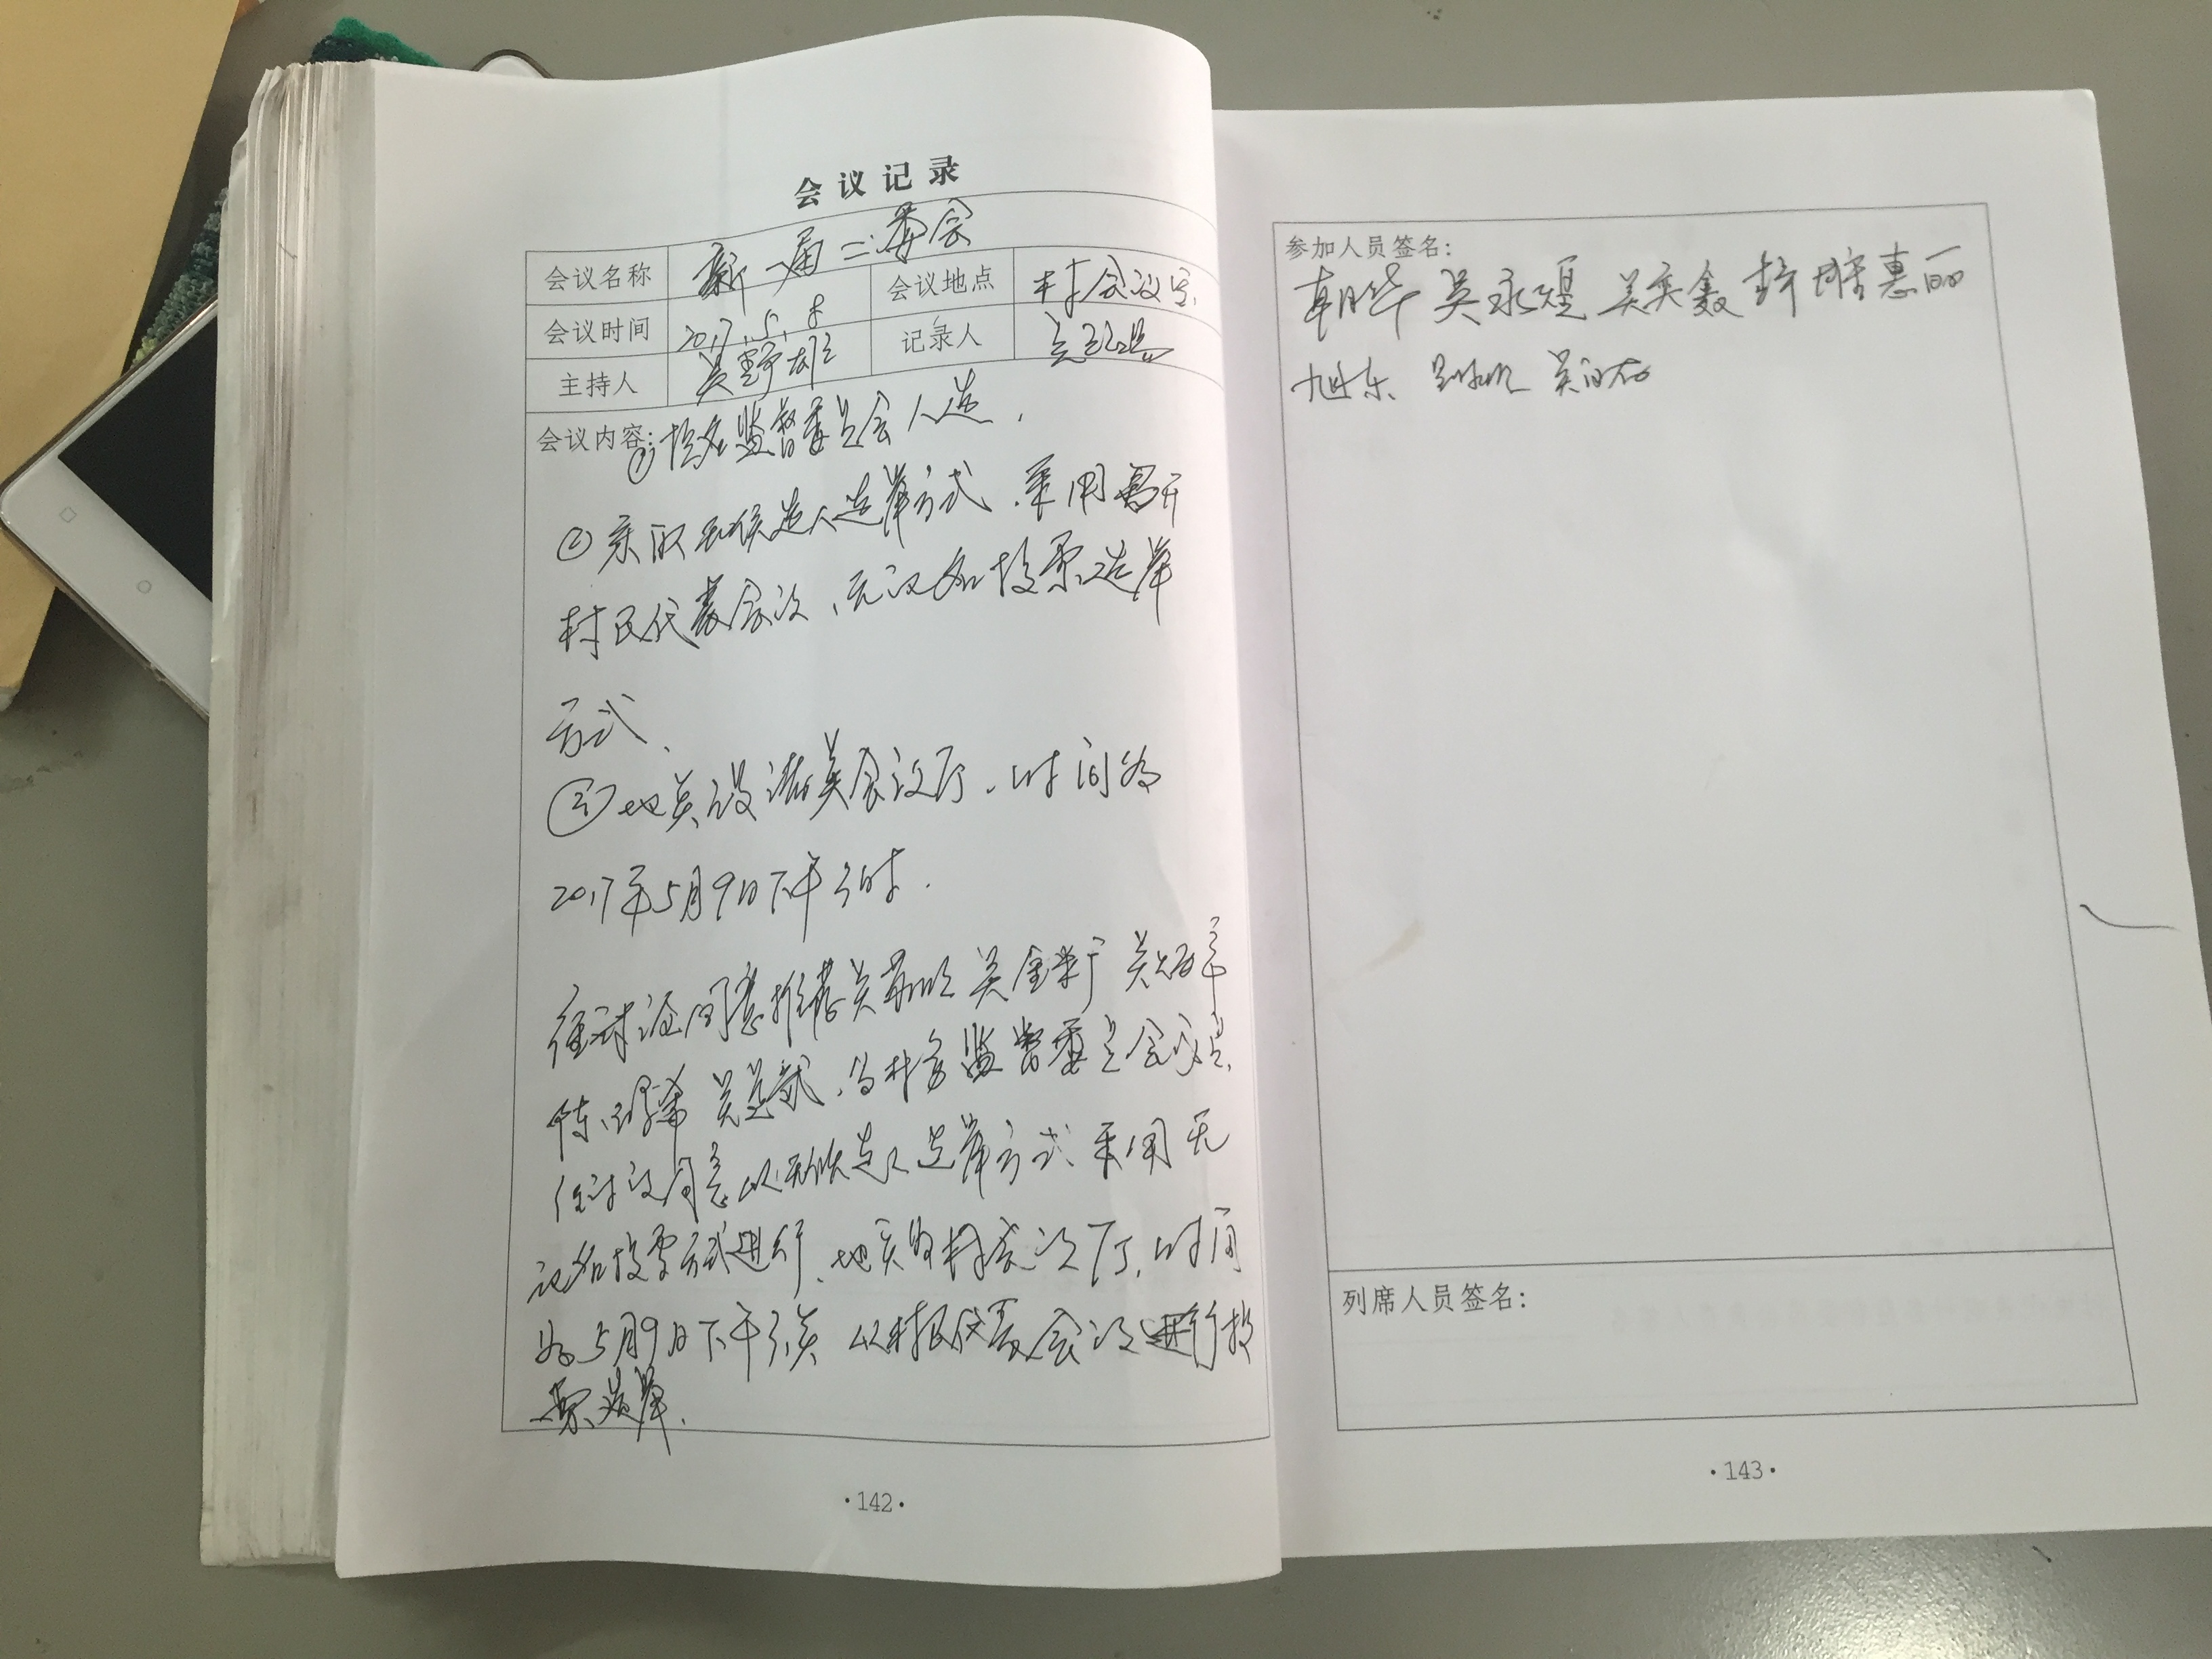 会议记录
会议名称 新一届二委会
会议地点 村会议室
会议时间 2017.5.8
记录人
主持人 吴野雄
会议内容: ① 提名监督委员会人选.
② 采取无候选人选举方式. 采用召开
村民代表会议、无记名投票选举
方式、
③ 地点设 会议厅、时间为
2017年5月9日下午3时.
经讨论同意推荐吴 吴金 吴
陈 吴 为村务监督委员会
经讨议同意以无候选人选举方式采用无
记名投票方式进行、地点为村会议厅, 时间
为5月9日下午3点 以村民代表会议进行投
票选举.
·142·
参加人员签名:
朝华 吴永煌 吴奕鑫 野雄 惠丽
旭东 吴
列席人员签名:
·143·